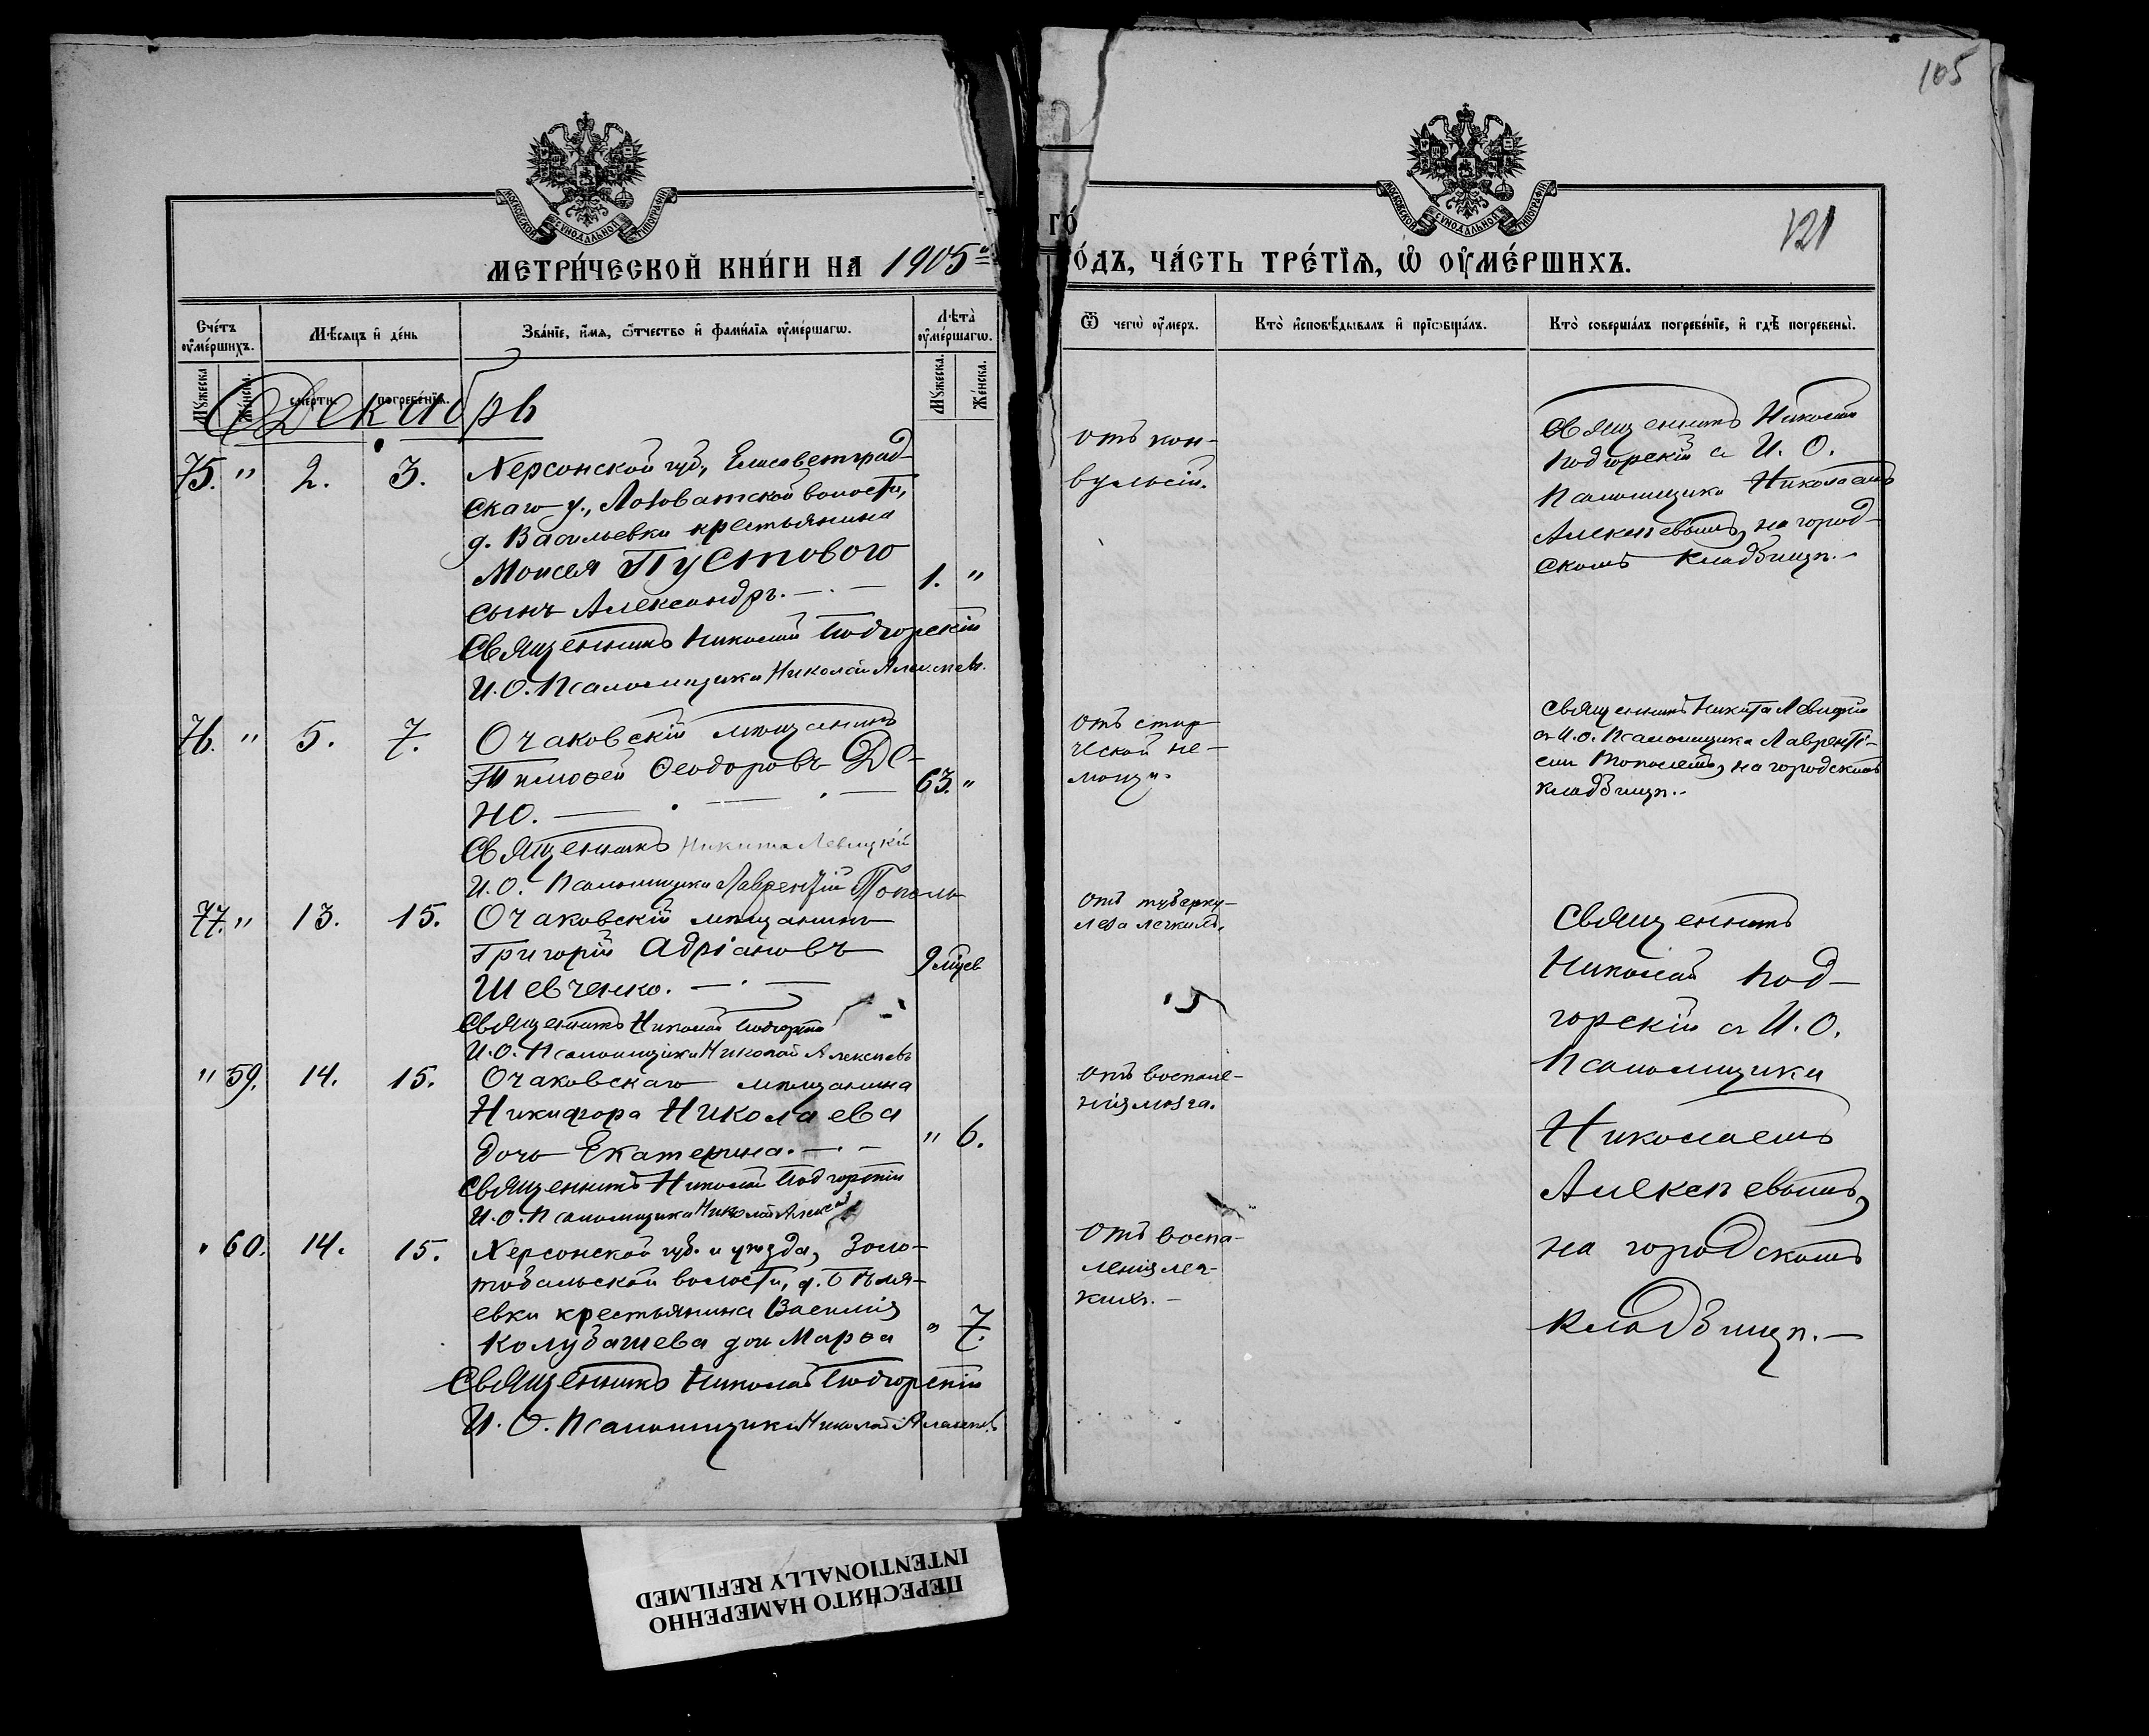 105
121
МОСКОВСКОЙ СѴНОДАЛЬНОЙ ТИПОГРАФІИ
МОСКОВСКОЙ СѴНОДАЛЬНОЙ ТИПОГРАФІИ
МЕТРИ́ЧЕСКОЙ КНИ́ГИ НА 1905
ГО́
О́ДЪ, ЧА́СТЬ ТРЕ́ТІѦ, Ѡ҆ ОУ҆МЕ́РШИХЪ.
Сче́тъ оу҆ме́ршихъ.
Мѣ́сѧцъ и҆ де́нь
Зва́нїе, и҆́мѧ, ѻ҆́тчество и҆ фами́лїѧ оу҆ме́ршагѡ.
Лѣ́та̀ оу҆ме́ршагѡ.
Ѿ чегѡ̀ оу҆́меръ.
Кто̀ и҆сповѣ́дывалъ и҆ прїѡбща́лъ.
Кто̀ соверша́лъ погребе́нїе, и҆ гдѣ̀ погребены̀.
Мꙋ́жеска
Же́нска.
сме́рти.
погребе́нїѧ.
Мꙋ́жеска.
Же́нска.
Декабрь
75. " 2. 3. Херсонской губ., Елисаветград-
скаго у., Лозоватской волости,
д. Васильевки крестьянина
Моисея Пустового
сынъ Александръ. — . — 1. "
Священникъ Николай Подгорскій
И. О. Псаломщика Николай Алексѣевъ.
отъ кон-
вульсій.
Священникъ Николай
Подгорскій съ И. О.
Псаломщика Николаемъ
Алексѣевымъ, на город-
скомъ кладбищѣ. —
76. " 5. 7. Очаковскій мѣщанинъ
Тимоѳей Ѳеодоровъ Де-
но. — . — . — 63. "
Священникъ Никита Левицкій
И. О. Псаломщика Лаврентій Тополь
отъ стар-
ческой не-
мощи.
Священникъ Никита Левицкій
съ И. О. Псаломщика Лаврентi-
емъ Тополемъ, на городскомъ
кладбищѣ. —
77. " 13. 15. Очаковскій мѣщанинъ
Григорій Адріановъ
Шевченко. — . — 9 мѣцев
Священникъ Николай Подгорскій
И. О. Псаломщика Николай Алексѣевъ
отъ туберку-
леза легкихъ.
Священникъ
Николай Под-
горскій съ И. О.
Псаломщика
Николаемъ
Алексѣевымъ,
на городскомъ
кладбищѣ. —
" 59. 14. 15. Очаковскаго мѣщанина
Никифора Николаева
дочь Екатерина. — . — " 6.
Священникъ Николай Подгорскій
И. О. Псаломщика Николай Алексѣевъ
отъ воспале-
нія мозга.
" 60. 14. 15. Херсонской губ. и уѣзда, Золо-
тобальской волости, д. Бѣля-
евки крестьянина Василія
Колубашева дочь Марѳа " 7.
Священникъ Николай Подгорскій
И. О. Псаломщика Николай Алексѣевъ
отъ воспа-
ленія лег-
кихъ. —
ПЕРЕСНЯТО НАМЕРЕННО
INTENTIONALLY REFILMED